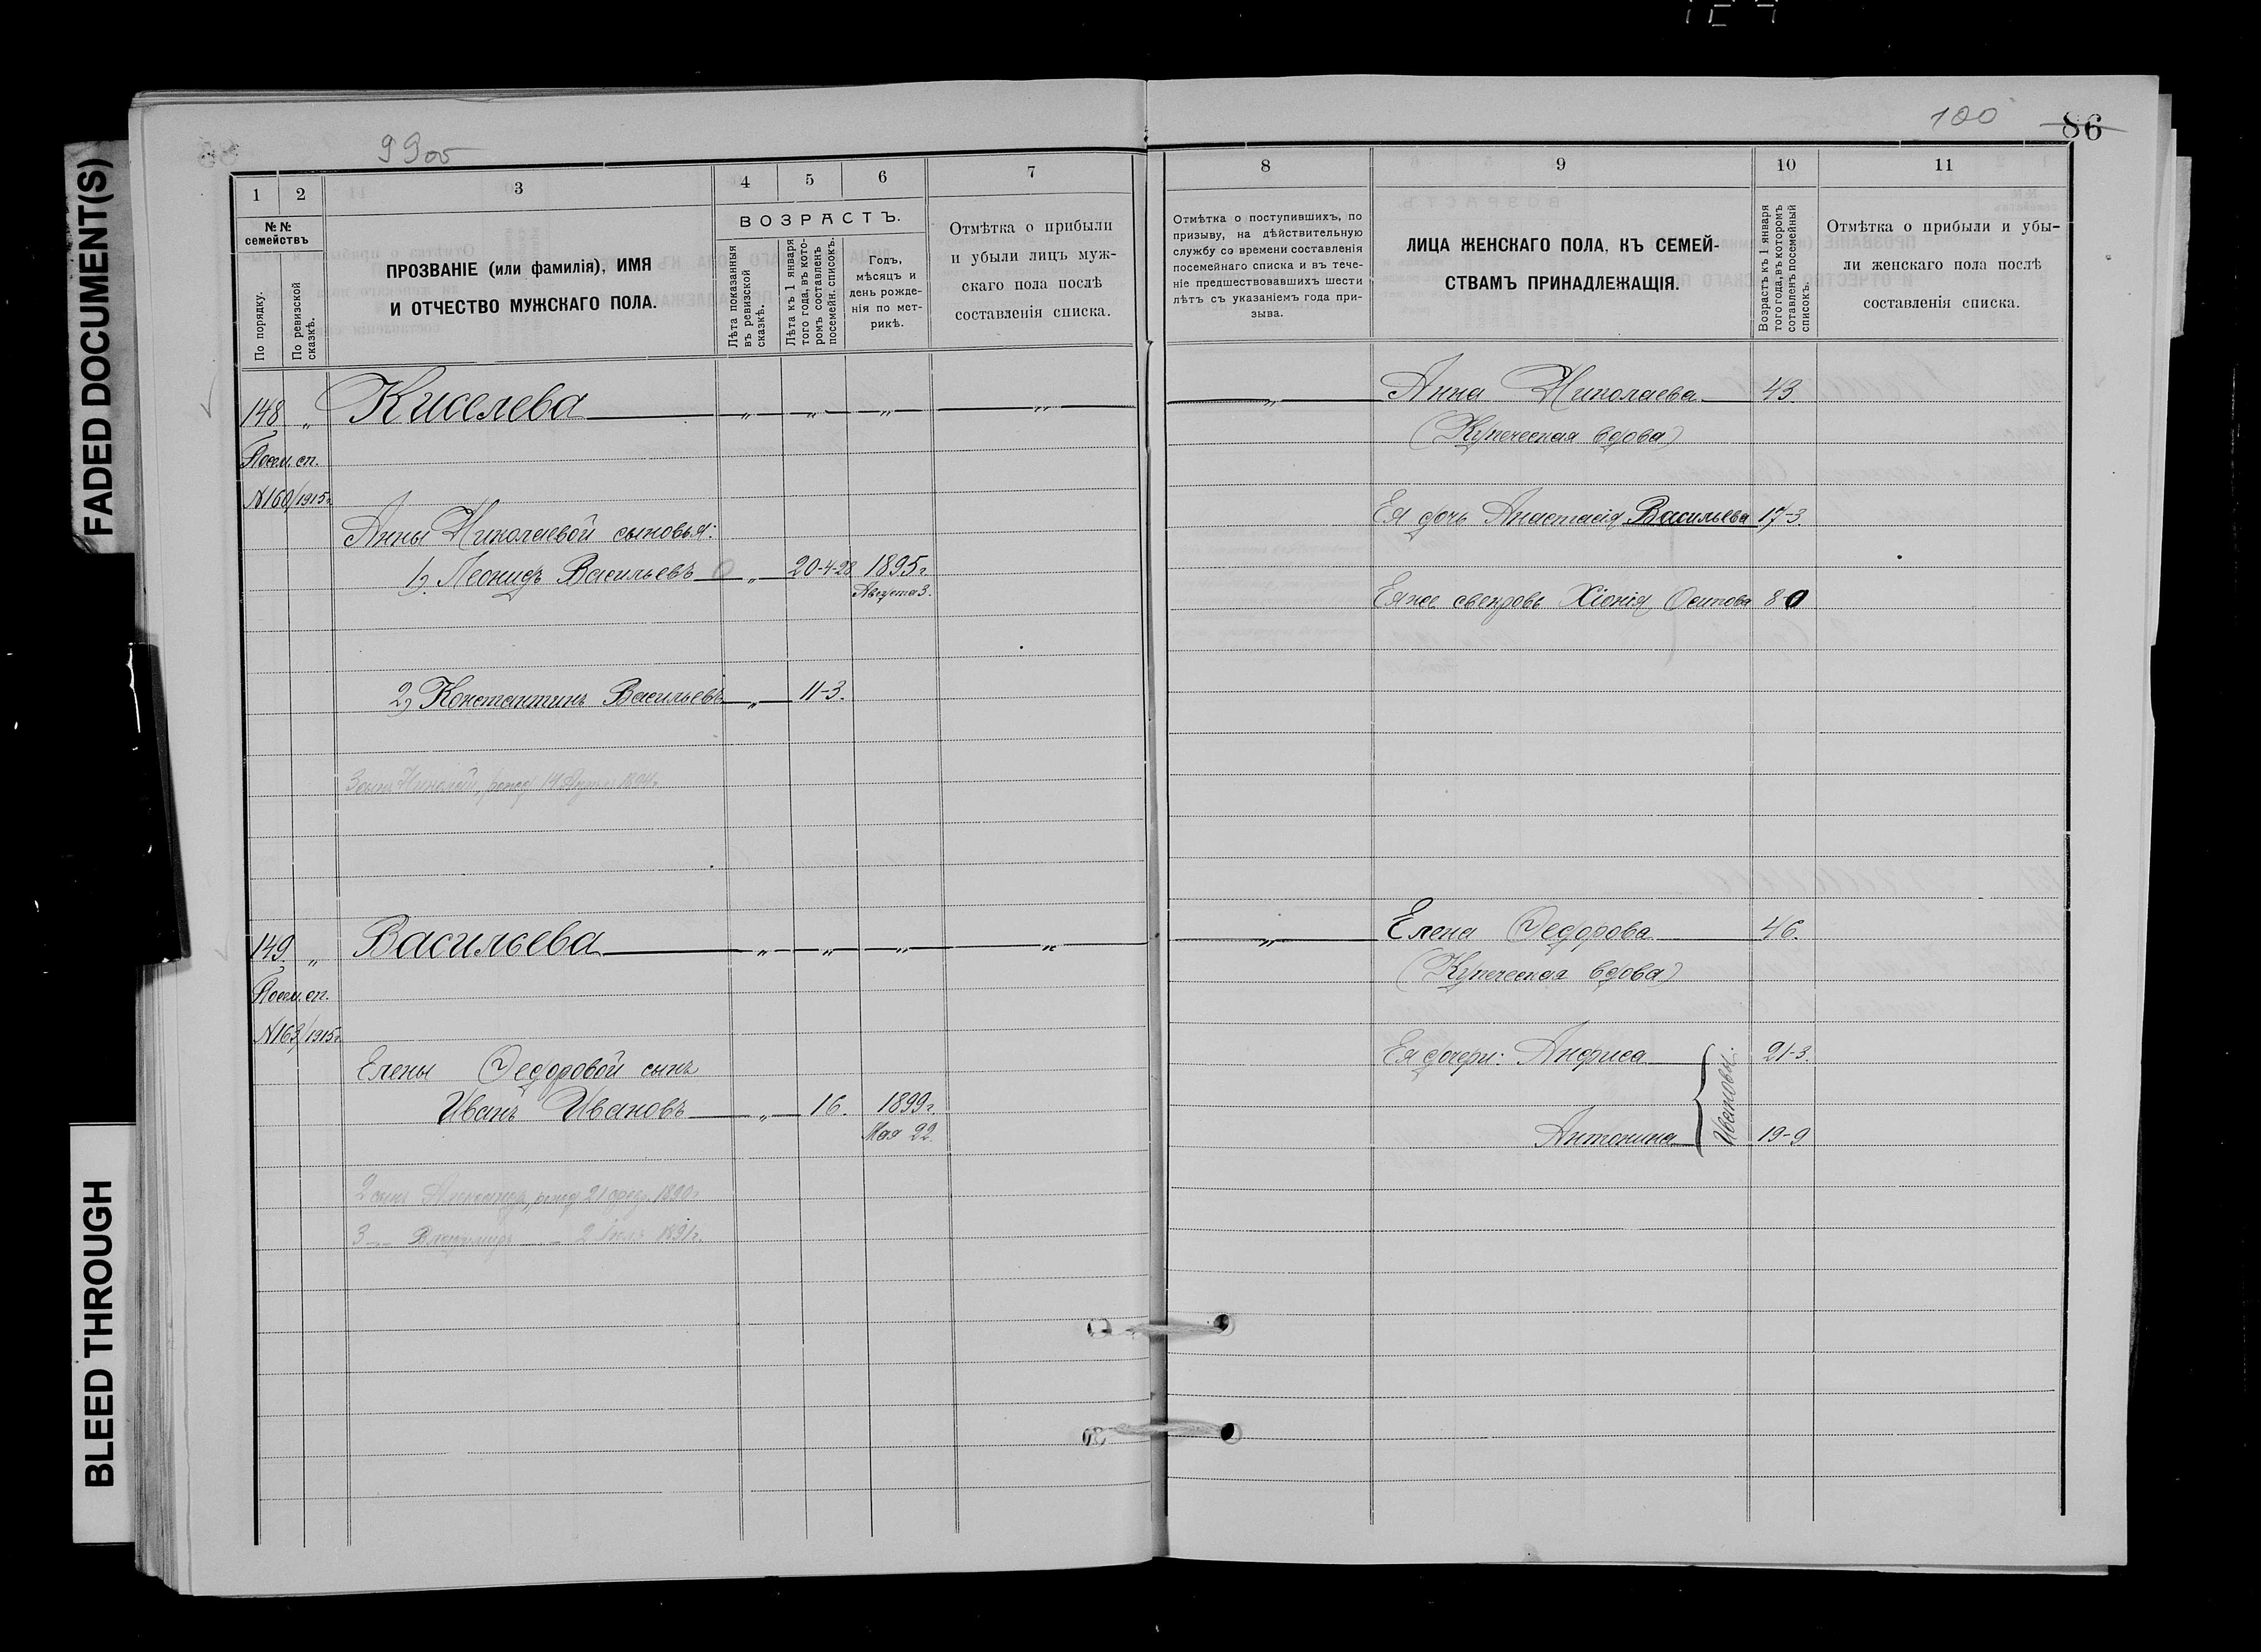 FADED DOCUMENT(S)
BLEED THROUGH
99об
1
2
3
4
5
6
7
№№ семействъ
По порядку.
По ревизской сказкѣ.
ПРОЗВАНІЕ (или фамилія), ИМЯ
И ОТЧЕСТВО МУЖСКАГО ПОЛА.
ВОЗРАСТЪ.
Лѣта показанныя
въ ревизской
сказкѣ.
Лѣта къ 1 января
того года, въ кото-
ромъ составленъ
посемейн. списокъ.
Годъ,
мѣсяцъ и
день рожде-
нія по мет-
рикѣ.
Отмѣтка о прибыли
и убыли лицъ муж-
скаго пола послѣ
составленія списка.
148 „ Киселева „ „ „ „
Посем. сп.
№160/1915г.
Анны Николаевой сыновья:
1) Леонидъ Васильевъ „ 20-4-28 1895г.
Августа 3.
2) Константинъ Васильевъ „ 11-3.
3 сынъ Николай, рожд. 14
149 „ Васильева „ „ „ „
Посем. сп.
№163/1915г.
Елены Федоровой сынъ
Иванъ Ивановъ „ 16. 1899г.
Мая 22.
2 сынъ Александръ, рожд. 21 1890г.
3 -„- Владимиръ -„- 2 1891г.
100
86
8
9
10
11
Отмѣтка о поступившихъ, по
призыву, на дѣйствительную
службу со времени составленія
посемейнаго списка и въ тече-
ніе предшествовавшихъ шести
лѣтъ съ указаніемъ года при-
зыва.
ЛИЦА ЖЕНСКАГО ПОЛА, КЪ СЕМЕЙ-
СТВАМЪ ПРИНАДЛЕЖАЩІЯ.
Возрастъ къ 1 января
того года, въ которомъ
сотавленъ посемейный
списокъ.
Отмѣтка о прибыли и убы-
ли женскаго пола послѣ
составленія списка.
„ Анна Николаева 43.
(Купеческая вдова)
Ея дочь Анастасія Васильева 17-3.
Ея же свекровь Хіонія Осипова 80
„ Елена Федорова 46.
(Купеческая вдова)
Ея дочери: Анфиса 21-3.
Ивановы.
Антонина 19-9